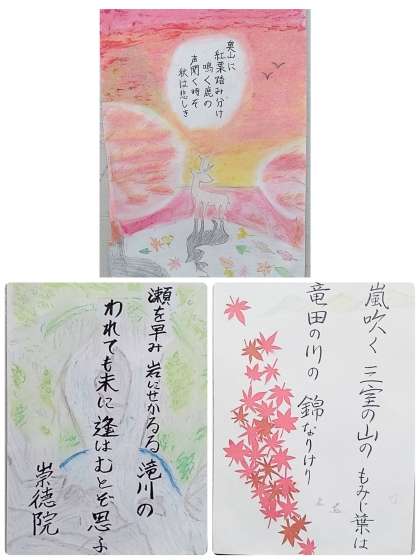 奥山に
紅葉踏み分け
鳴く鹿の
声聞く時ぞ
秋は悲しき
瀬を早み 岩にせかるる 滝川の
われても末に 逢はむとぞ思ふ
崇徳院
嵐吹く 三室の山の もみじ葉は
竜田の川の 錦なりけり